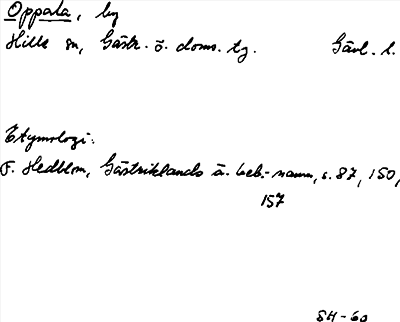 Oppala, by
Hille sn, Gästr. ö. doms. tg. Gävl. l.
Etymologi:
F. Hedblom, Gästriklands ä. beb.-namn, s. 87, 150,
157
SH-60